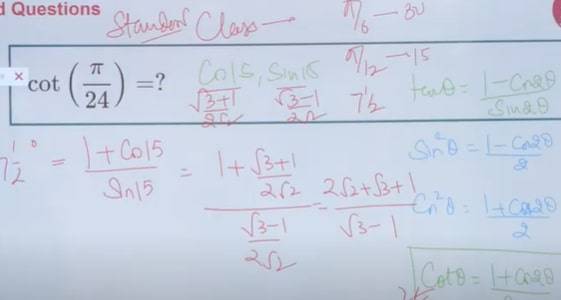 d Questions
Standard Class —
π/6 — 30
π/12 — 15
7½
cot (π/24) =?
Cos15, Sin15
√3+1/2√2   √3-1/2√2
tanθ = 1-Cos2θ/Sin2θ
7½° = 1+Cos15/Sin15 = 1+√3+1/2√2 / √3-1/2√2 = 2√2+√3+1/√3-1
Sin²θ = 1-Cos2θ/2
Cos²θ = 1+Cos2θ/2
Cotθ = 1+Cos2θ